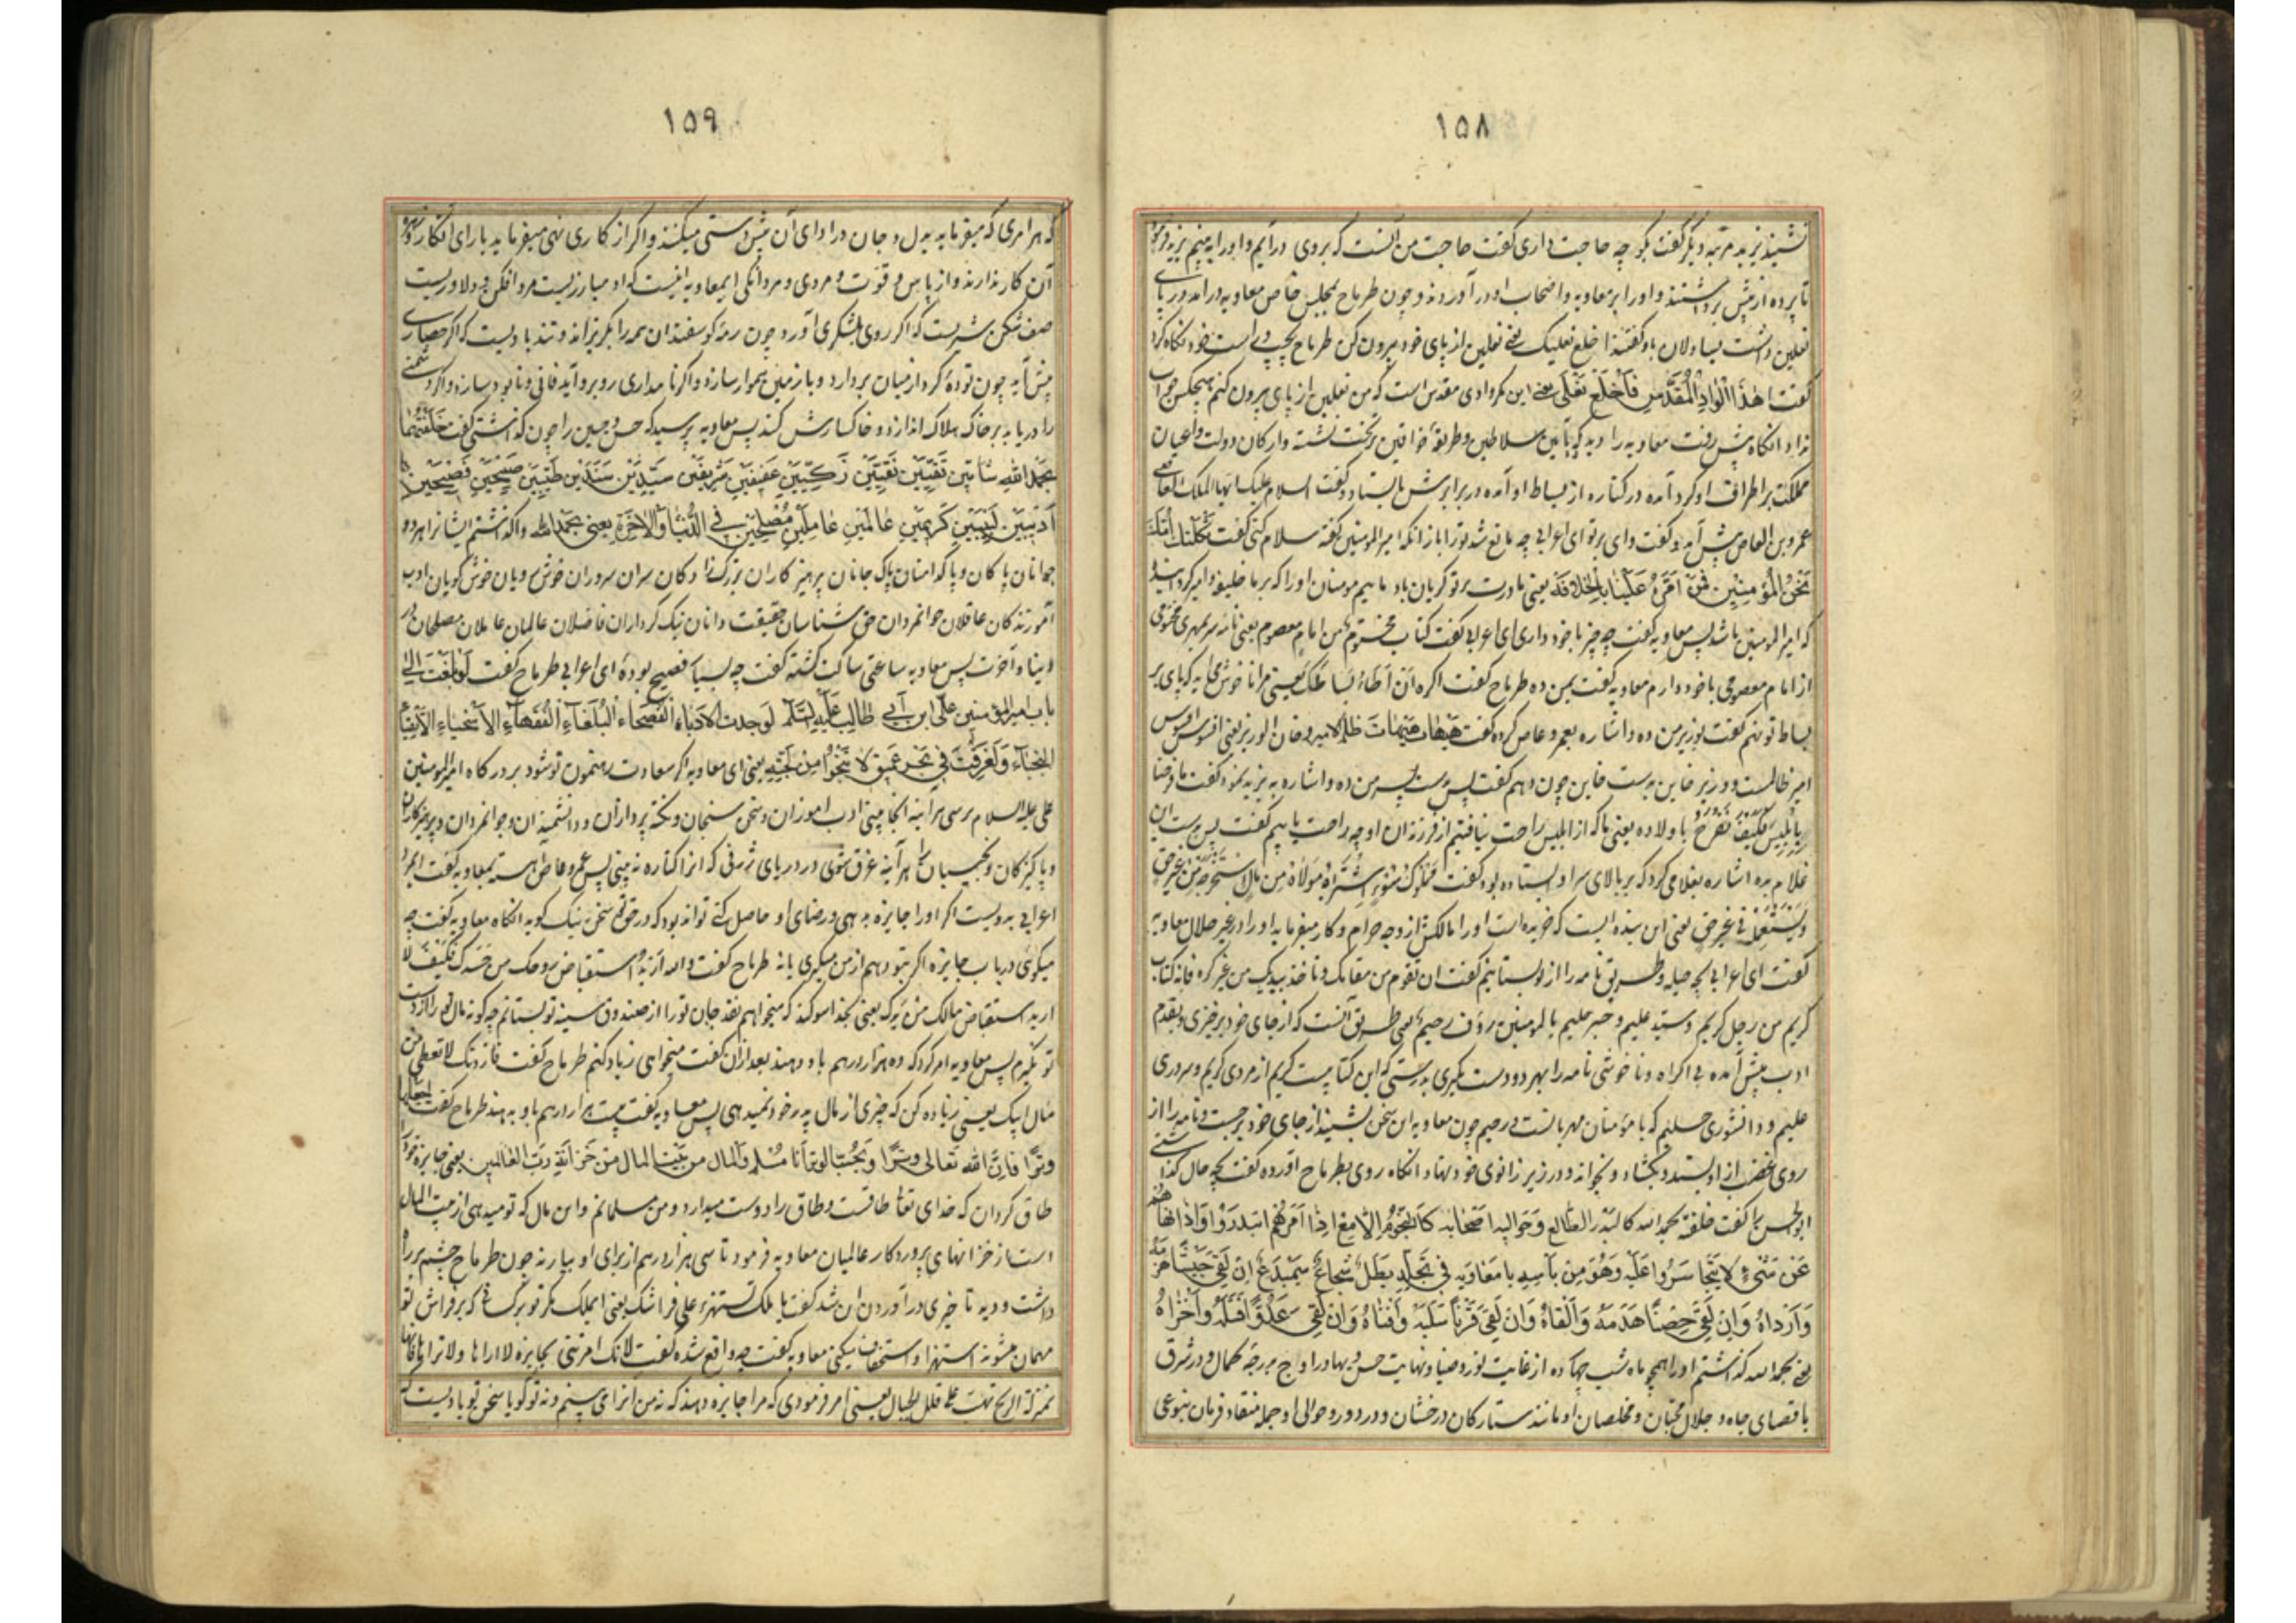 ۱۵۸
نشیند یزید مرتبه دیگر گفت بگو چه حاجت داری گفت حاجت من آنست که بروی درآیم و او را به بینم یزید فرمود
تا پرده از پیش برداشتند و او را بر معاویه و اصحاب او درآوردند و چون طرماح بمجلس خاص معاویه درآمد در پای
نعلین داشت یساولان باو گفتند اخلع نعلیک یعنی نعلین از پای خود بیرون کن طرماح بچپ و راست خود نگاه کرد
گفت اهذا الواد المقدس فاخلع نعلی یعنی این مگر وادی مقدس است که من نعلین از پای بیرون کنم هیچکس جواب
نداد انگاه پیش رفت معاویه را دید که بآیین سلاطین و طریقه خواقین بر تخت نشسته و ارکان دولت و اعیان
مملکت بر اطراف او گرد آمده در کناره از بساط او آمده در برابرش بایستاد و گفت السلام علیک ایها الملک العاصی
عمرو بن العاص پیش آمد و گفت وای بر تو ای اعرابی چه مانع شد تو را باز آنکه امیرالمومنین گفته سلام کنی گفت ثکلتک امک
نحن المؤمنین فمن امره علینا بالخلافة یعنی مادرت بر تو گریان باد ما هیم مومنان او را که بر ما خلیفه و امیر گردانید
که امیرالمومنین باشد پس معاویه گفت چه چیز با خود داری ای اعرابی گفت کتاب مختوم من امام معصوم یعنی نامه سر بمهری مختوم
از امام معصومی با خود دارم معاویه گفت بمن ده طرماح گفت اکره ان اطاء بساطک یعنی مرا ناخوش می آید که پای بر
بساط تو نهم گفت بوزیر من ده و اشاره بعمرو عاص کرد گفت هیهات هیهات ظلم الامیر و خان الوزیر یعنی افسوس افسوس
امیر ظالمست و وزیر خاین بدست خاین چون دهم گفت پس بدست پسر من ده و اشاره به یزید نمود گفت ما فرحنا
بابلیس فکیف نفرح باولاده یعنی ما که از ابلیس راحت نیافتیم از فرزندان او چه راحت یابیم گفت پس بدست این
غلام بده اشاره بغلامی کرد که بر بالای سر او ایستاده بود گفت مملوک سوء اشتراه مولاه من مال غیر حق
و یستعمله فی غیر حق یعنی این بنده ایست که خریده است او را مالکش از وجه حرام و کار میفرماید او را در غیر حلال معاویه
گفت ای اعرابی بچه حیله و طریق نامه را از تو بستانیم گفت ان تقوم من مقامک و تاخذ بیدیک من غیر کره فانه کتاب
کریم من رجل کریم و سید علیم و حبر حلیم بالمومنین رؤف رحیم یعنی طریق آنست که از جای خود برخیزی و بقدم
ادب پیش آمده بی اکراه و ناخوشی نامه را بهر دو دست بگیری بدرستی که این کتابیست کریم از مردی کریم و سروری
علیم و دانشوری حلیم که با مومنان مهربانست و رحیم چون معاویه این سخن بشنید از جای خود برجست و نامه را از
روی غضب از او بستد و بگشاد و بخواند و در زیر زانوی خود نهاد انگاه روی بطرماح آورده گفت بچه حال گذاشتی
ابوالحسن را گفت خلفته بحمد الله کالبدر الطالع و حوالیه اصحابه کالنجوم اللامع اذا امرهم ابتدروا و اذا نهاهم
عن شیء لا یتجاسروا علیه و هو من باسه یا معاویه فی تجلد بطل شجاع سمیدع ان لقی جیشا هزمه
و ارداه و ان لقی حصنا هدمه و القاه و ان لقی قرنا سلبه و افناه و ان لقی عدوا قتله و اخزاه
یعنی بحمد الله که گذاشتم او را همچو ماه شب چهارده از غایت نور و ضیا و نهایت حسن و بها در اوج درجه کمال و در شرق
با قصای جاه و جلال محبان و مخلصان او مانند ستارگان درخشان و در دور و حوالی او جمله منقاد فرمان بنوعی
۱۵۹
که هر امری که میفرماید بدل و جان در ادای آن پیش دستی میکنند و اگر از کاری نهی میفرماید یارای انکار و
آن کار ندارند و از باس و قوت و مردی و مردانگی ای معاویه اینست که او مبارزیست مردافکن و دلاوریست
صف شکن شیریست که اگر روی بلشکری آورد چون رمه گوسفندان همه را بگریزاند و تندبادیست که اگر حصاری
پیش آید چون توده گرد از میان بردارد و با زمین هموار سازد و اگر نامداری روبرو آید فانی و نابود سازد و اگر دشمنی
را دریابد بر خاک هلاک اندازد و خاکسارش کند پس معاویه پرسید که حسن و حسین را چون گذاشتی گفت خلفتهما
بحمد الله شابین تقیین نقیین زکیین عفیفین شریفین سیدین سندین طیبین صبیحین فصیحین
ادیبین لبیبین کریمین عالمین عاملین مصلحین فی الدنیا و الاخرة یعنی بحمد الله واگذاشتم ایشان را هر دو
جوانان پاکان و پاکدامنان پاک جانان پرهیزکاران بزرگ زادگان سران سروران خوش رویان خوش گویان ادب
آموزندگان عاقلان جوانمردان حق شناسان حقیقت دانان نیک کرداران فاضلان عالمان عاملان مصلحان در
دنیا و آخرت پس معاویه ساعتی ساکت گشته گفت چه بسیار فصیح بوده ای اعرابی طرماح گفت لو بلغت الی
باب امیرالمؤمنین علی ابن ابی طالب علیه السلام لوجدت الادباء الفصحاء البلغاء الفقهاء الاسخیاء الاتقیاء
النجباء و لغرقت فی بحر عمیق لا تنجوا من لجته یعنی ای معاویه اگر سعادت رهنمون تو شود بدرگاه امیرالمومنین
علی علیه السلام برسی هر آینه آنجا بینی ادب آموزان و سخن سنجان و نکته پردازان و دانشمندان و جوانمردان و پرهیزکاران
و پاکیزگان و نجیبان را هر آینه غرق شوی در دریای ژرفی که آنرا کناره نه بینی پس عمرو عاص آهسته بمعاویه گفت این مرد
اعرابی بدویست اگر او را جایزه بدهی و رضای او حاصل کنی تواند بود که در حق تو سخن نیک گوید انگاه معاویه گفت چه
میگوئی در باب جایزه اگر بتو دهم از من میگیری یا نه طرماح گفت والله ارید استقباض روحک من جسدک فکیف لا
ارید استقباض مالک من یدک یعنی بخدا سوگند که میخواهم نقد جان تو را از صندوق سینه تو بستانم چگونه مال تو را از دست
تو نگیرم پس معاویه امر کرد که ده هزار درهم باو دهند بعد از آن گفت میخواهی زیاد کنم طرماح گفت فازدنک لا تعطی من
مال ابیک یعنی زیاده کن که چیزی از مال پدر خود نمیدهی پس معاویه گفت بیست هزار درهم باو بدهند طرماح گفت اجعلها
وترا فان الله تعالی وترا و یحب الوتر انا مسلم و المال من بیت المال من خزانة رب العالمین یعنی جایزه خود را
طاق گردان که خدای تعالی طاقست و طاق را دوست میدارد و من مسلمانم و این مال که تو میدهی از بیت المال
است از خزانهای پروردگار عالمیان معاویه فرمود تا سی هزار درهم از برای او بیارند چون طرماح چشم بر راه
داشت و دید تاخیری در آوردن ان شد گفت یا ملک تستهزء علی فراشک یعنی ای ملک مگر تو بر کسی که بر فراش تو
مهمان میشود استهزا و استخفاف میکنی معاویه گفت چه واقع شده گفت لانک امرتنی بجایزة لا اراها و لا تراها فانها
بمنزلة الریح تهب علی قلل الجبال یعنی امر فرمودی که مرا جایزه دهند که نه من آنرا می بینم و نه تو گویا سخن تو بادیست که